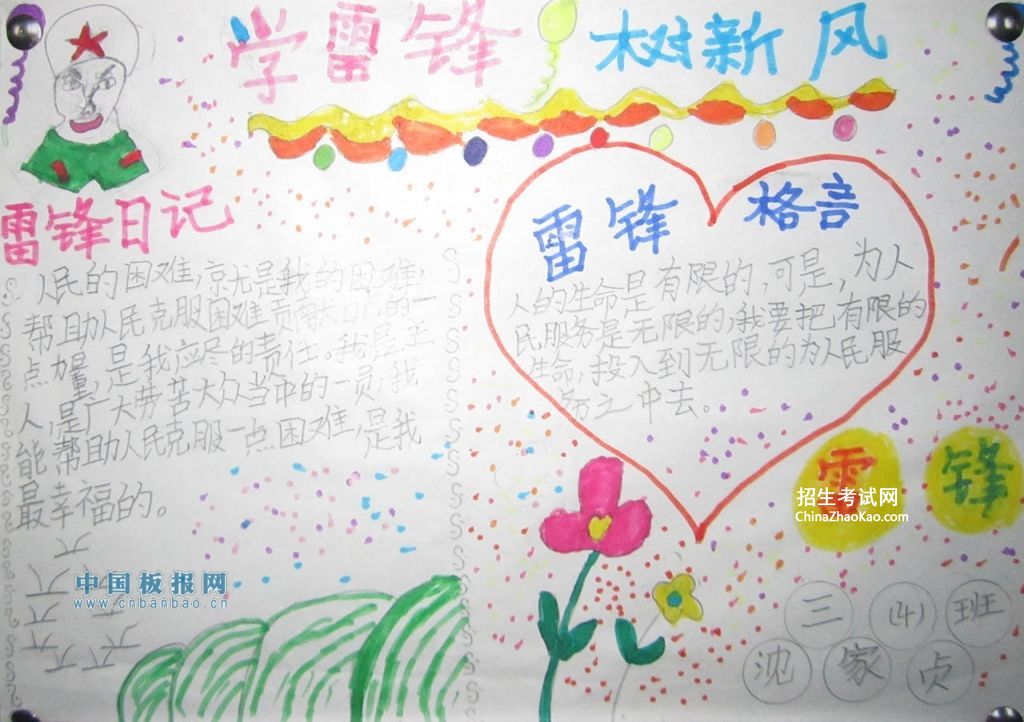 学雷锋 树新风
雷锋日记
人民的困难,就是我的困难,
帮助人民克服困难贡献自己的一
点力量,是我应尽的责任。我是主
人,是广大劳苦大众当中的一员,我
能帮助人民克服一点困难,是我
最幸福的。
雷锋 格言
人的生命是有限的,可是,为人
民服务是无限的,我要把有限的
生命,投入到无限的为人民服
务之中去。
雷 锋
招生考试网
ChinaZhaoKao.com
中国板报网
www.cnbanbao.cn
三 (4) 班
沈 家 贞